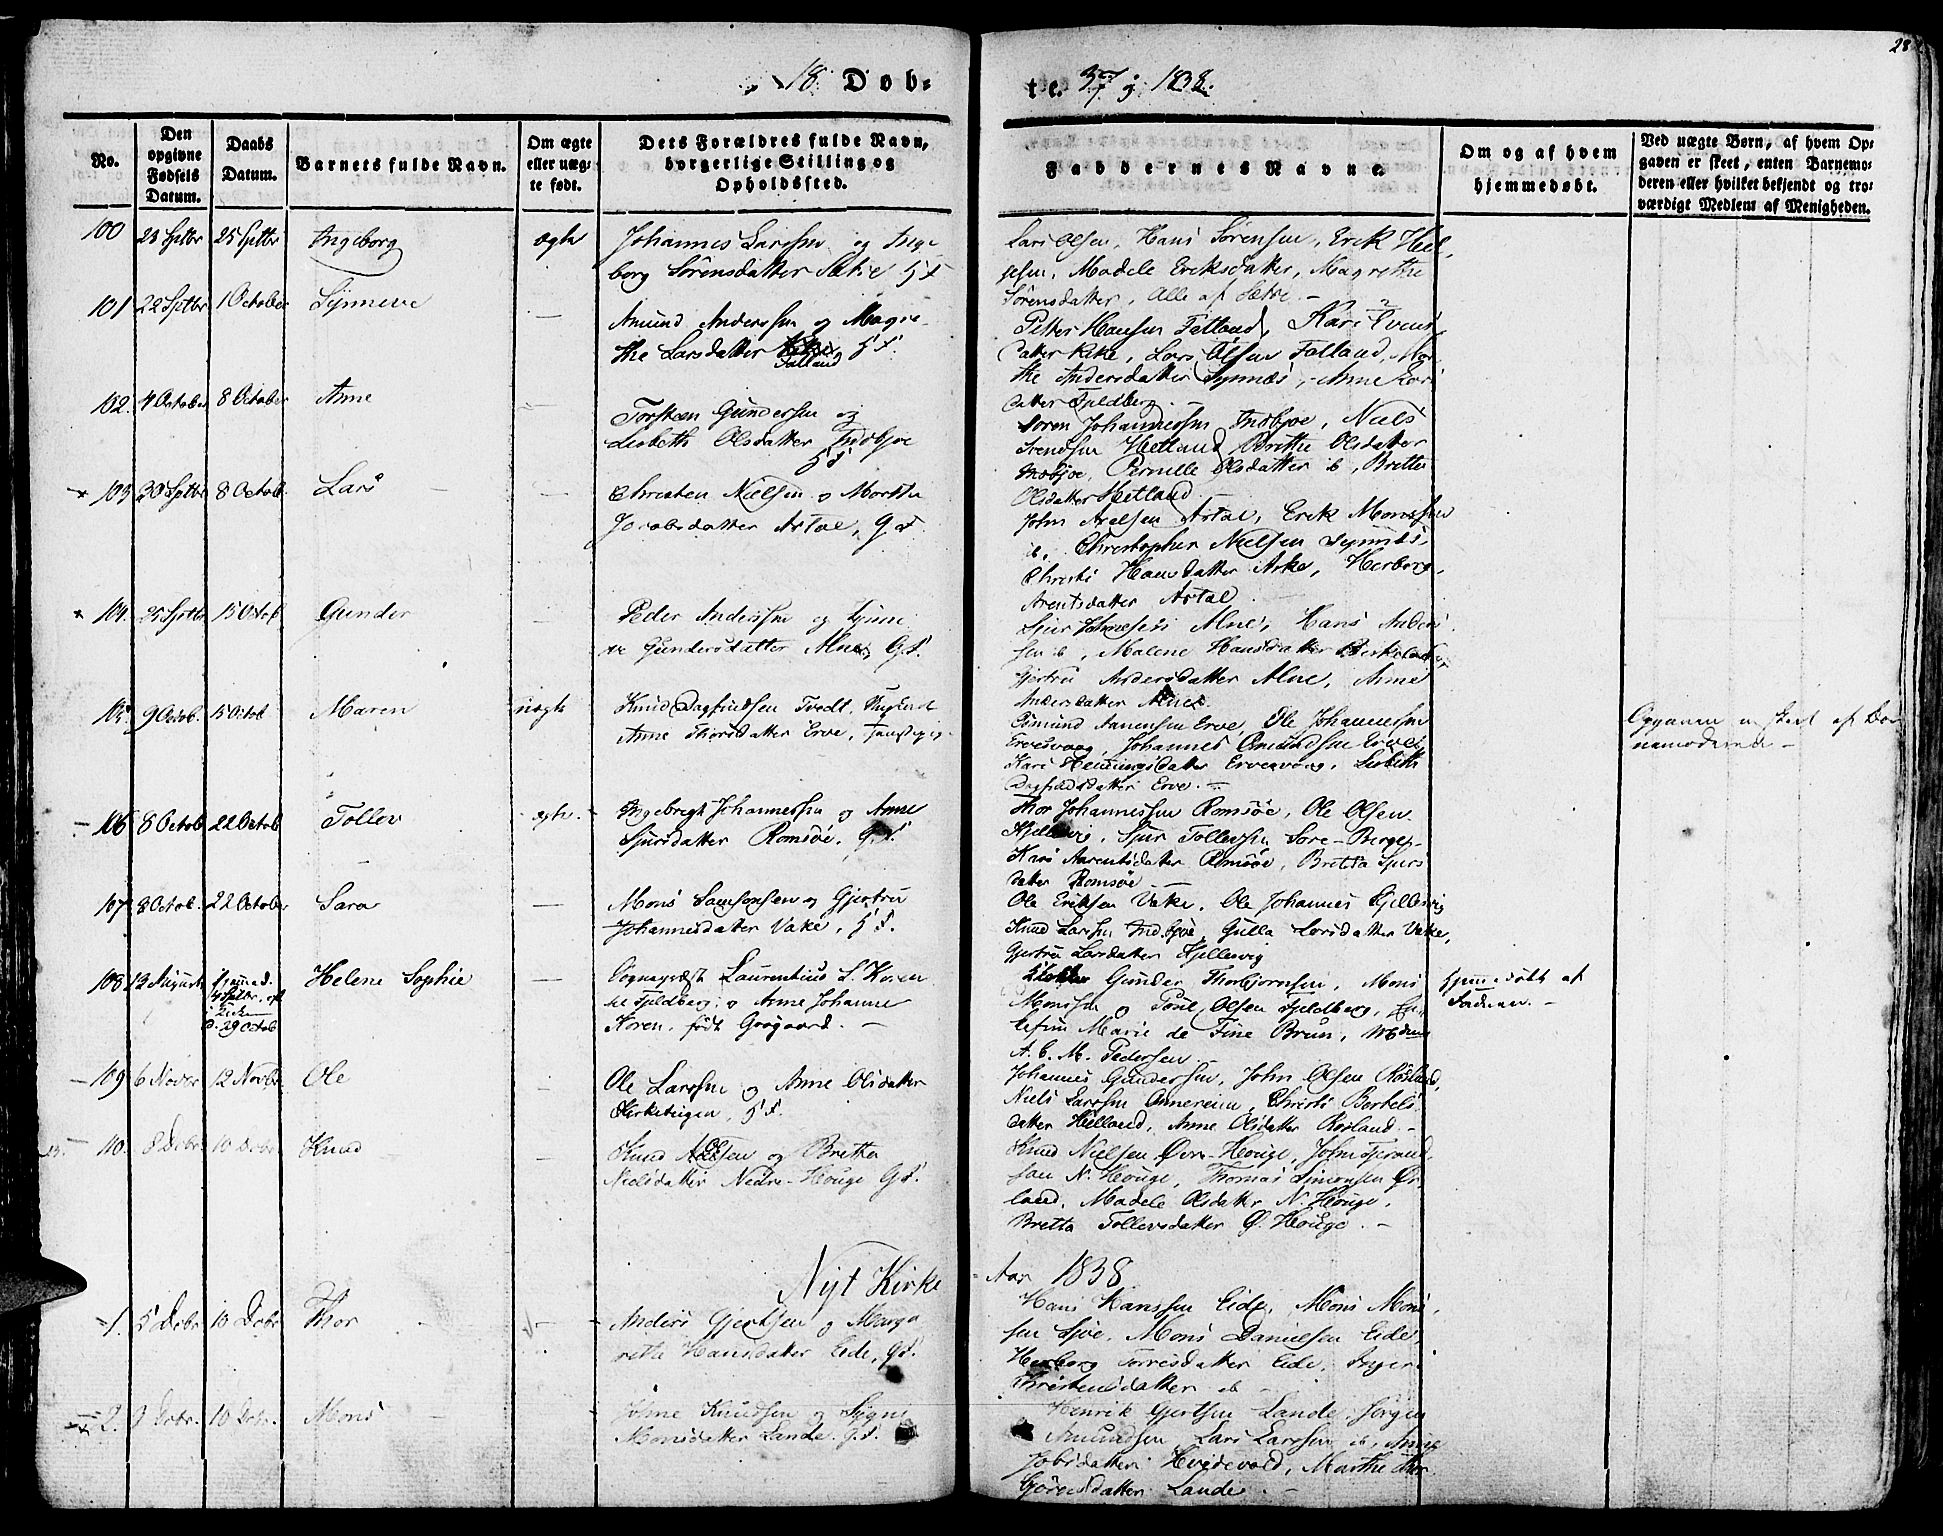 28
18 Døb=
te. 37 & 1838.
No.
Den opgivne Fødsels Datum.
Daabs Datum.
Barnets fulde Navn.
Om ægte eller uæg= te født.
Dets Forældres fulde Navn, borgerlige Stilling og Opholdssted.
Faddernes Navne.
Om og af hvem hjemmedøbt.
Ved uægte Børn, af hvem Op= gaven er skeet, enten Barnemo= deren eller hvilket bekjendt og tro= værdigt Medlem af Menigheden.
100 23 Septbr 25 Septbr Ingeborg ægte Johannes Larssen og Inge
borg Sörensdatter Sætre
Lars Olsen, Hans Sörensen, Erik Hel
gesen, Madele Eriksdatter, Magrethe
Sörensdatter, Alle af Sætre. –
101 22 Septbr 1 October Synneve — Amund Anderssen og Magre
the Larsdatter Tatland
Petter Hansen Tatland, Kari
datter Eke, Lars Olsen Tatland, Mar
the Andersdatter Synnæs, Anne Lars
datter Fjeldberg.
102. 4 October 8 October Anne — Torsten Gunderssen og
Lisbeth Olsdatter Indbjoe
Sören Johannessen Indbjoe, Niels
Svendsen Hetland, Brithe Olsdatter
Indbjoe, Pernille Olsdatter ib, Britte
Olsdatter Hetland
103 30 Septbr 8 Octob. Lars — Christen Nielsen og Marthe
Jacobsdatter Axtal, G.f.
John Axelsen Axtal, Erik Monssen
ib, Christopher Nielsen Synnæs,
Christi Hansdatter Arke, Herborg
Arentsdatter Axtal
104. 25 Septbr 15 Octob Gunder — Peder Anderssen og Synne
ve Gundersdatter Alne, G.f.
Sjur Johannessen Alne, Hans Anders
sen ib, Malene Hansdatter Birkeland,
Gjertru Andersdatter Alne, Anne
Andersdatter Alne.
105 9 Octob. 15 Octob Maren uægte Knud Dagfindsen Tvedt, Ungkarl
Anne Thorsdatter Erve, Tjenestepige
Osmund Aanensen Erve, Ole Johannessen
Ervesvaag, Johannes Osmundsen Erve,
Kari Henningsdatter Ervesvaag, Lisbeth
Dagfindsdatter Erve. –
Opgaven er skeet af Bar
nemoderen –
106 8 Octob 22 Octob Tollev ægte. Ingebregt Johannessen og Anne
Sjursdatter Romsöe, G.f.
Thor Johannessen Romsöe, Ole Olsen
Kjellesvig, Sjur Tollevsen Sore-Berge,
Kari Aarentsdatter Romsöe, Britta Sjurs
datter Romsöe —
107 8 Octob. 22 October Sara — Mons Samsonsen og Gjertru
Johannesdatter Vake,
Ole Eriksen Vake, Ole Johannes Kjellesvig
Knud Larssen Indbjoe, Gulla Larsdatter Vake,
Gjertru Larsdatter Kjellesvig
108 12 August
29 Octob Helene Sophie — Sognepræst Laurentius S. Koren
til Fjeldberg, og Anne Johanne
Koren, födt Grogaard. –
Gunder Thorbjornsen, Mons
Monssen og Poul Olsen Fjeldberg,
Marie de Fine Brun, Madame
A. C. M. Pedersen
Hjemmedöbt af
Faderen. –
109 6 Novbr 12 Novbr Ole — Ole Larssen og Anne Olsdatter
Kirketeigen,
Johannes Gunderssen, John Olsen Rösland,
Niels Larssen Onnereim, Christi Bertels
datter Helland, Anne Olsdatter Rösland –
10. 8 Decbr 10 Decbr Knud — Knud Olsen og Britta
Nielsdatter Nedre-Houge G.f.
Knud Nielsen Övre-Houge, John
sen N. Houge, Thomas Simonsen Ör
land, Madele Olsdatter N. Houge,
Britta Tollevsdatter Ö. Houge. –
Nyt Kirke
- Aar 1838
1. 5 Decbr 10 Decbr Thor — Anders Gjertsen og Marga
retha Hansdatter Eide, G.f.
Hans Hanssen Eide, Mons Mons
sen Sjoe, Mons Danielsen Eide,
Herborg Torresdatter Eide, Inger
Christensdatter ib –
2. 3 Decbr. 10 Decbr. Mons Johne Knudsen og Signe
Monsdatter Lande. G.f.
Henrik Gjertsen Lande, Jörgen
Amundsen, Lars Larssen ib, Anne
Jobsdatter Hvedevold, Marthe Thor
Görensdatter Lande. –